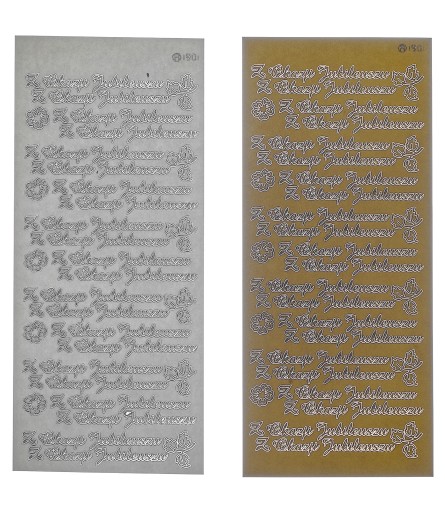 Z Okazji Jubileuszu
Z Okazji Jubileuszu
Z Okazji Jubileuszu
Z Okazji Jubileuszu
Z Okazji Jubileuszu
Z Okazji Jubileuszu
Z Okazji Jubileuszu
Z Okazji Jubileuszu
Z Okazji Jubileuszu
Z Okazji Jubileuszu
Z Okazji Jubileuszu
Z Okazji Jubileuszu
Z Okazji Jubileuszu
Z Okazji Jubileuszu
Z Okazji Jubileuszu
Z Okazji Jubileuszu
Z Okazji Jubileuszu
Z Okazji Jubileuszu
Z Okazji Jubileuszu
Z Okazji Jubileuszu
Z Okazji Jubileuszu
Z Okazji Jubileuszu
Z Okazji Jubileuszu
Z Okazji Jubileuszu
Z Okazji Jubileuszu
Z Okazji Jubileuszu
Z Okazji Jubileuszu
Z Okazji Jubileuszu
Z Okazji Jubileuszu
Z Okazji Jubileuszu
Z Okazji Jubileuszu
Z Okazji Jubileuszu
Z Okazji Jubileuszu
Z Okazji Jubileuszu
Z Okazji Jubileuszu
Z Okazji Jubileuszu
Z Okazji Jubileuszu
Z Okazji Jubileuszu
Z Okazji Jubileuszu
Z Okazji Jubileuszu
Z Okazji Jubileuszu
Z Okazji Jubileuszu
Z Okazji Jubileuszu
Z Okazji Jubileuszu